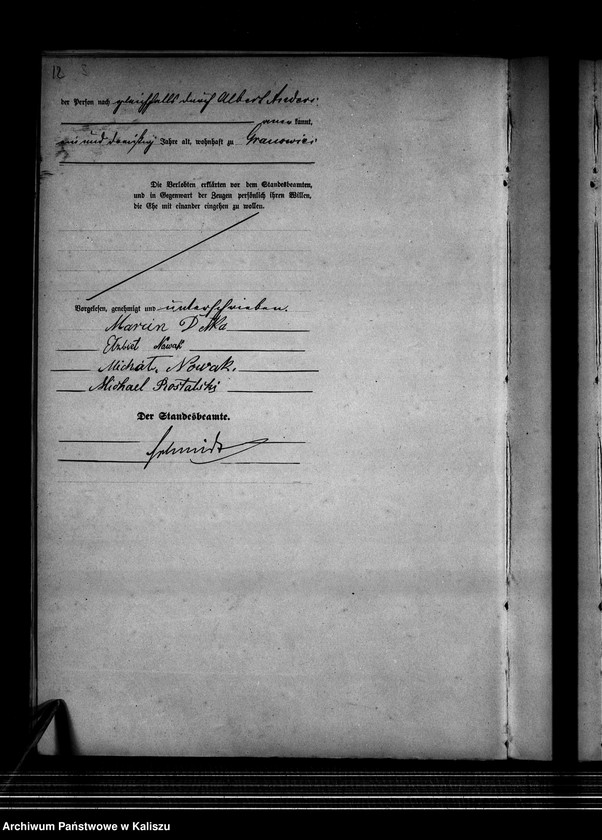 12
der Person nach gleichfalls durch Albert Anders
aner kannt,
ein und dreißig Jahre alt, wohnhaft zu Granowiec
Die Verlobten erklärten vor dem Standesbeamten,
und in Gegenwart der Zeugen persönlich ihren Willen,
die Ehe mit einander eingehen zu wollen.
Vorgelesen, genehmigt und unterschrieben.
Marcin
Nowak
Michał Nowak.
Michael Rostalski
Der Standesbeamte.
Schmidt
Archiwum Państwowe w Kaliszu